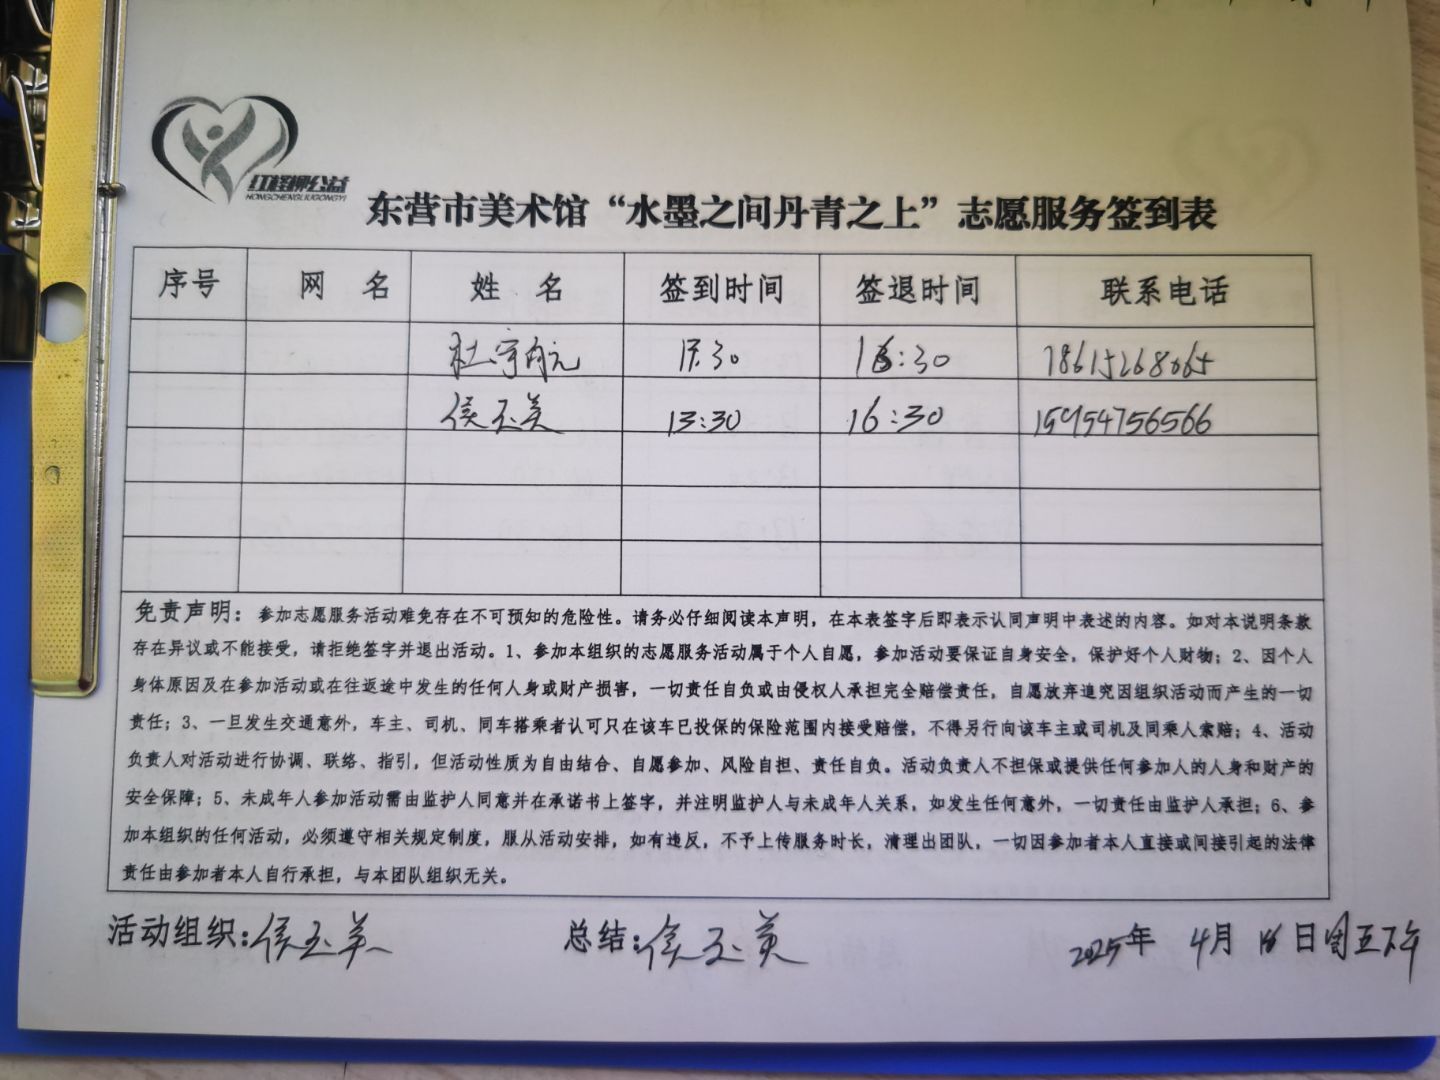 红柽柳公益
HONGCHENGLIUGONGYI
东营市美术馆“水墨之间丹青之上”志愿服务签到表
序号 网 名 姓 名 签到时间 签退时间 联系电话
杜宇航 :30 16:30
侯玉英 13:30 16:30 15954756566
免责声明：参加志愿服务活动难免存在不可预知的危险性。请务必仔细阅读本声明，在本表签字后即表示认同声明中表述的内容。如对本说明条款
存在异议或不能接受，请拒绝签字并退出活动。1、参加本组织的志愿服务活动属于个人自愿，参加活动要保证自身安全，保护好个人财物；2、因个人
身体原因及在参加活动或在往返途中发生的任何人身或财产损害，一切责任自负或由侵权人承担完全赔偿责任，自愿放弃追究因组织活动而产生的一切
责任；3、一旦发生交通意外，车主、司机、同车搭乘者认可只在该车已投保的保险范围内接受赔偿，不得另行向该车主或司机及同乘人索赔；4、活动
负责人对活动进行协调、联络、指引，但活动性质为自由结合、自愿参加、风险自担、责任自负。活动负责人不担保或提供任何参加人的人身和财产的
安全保障；5、未成年人参加活动需由监护人同意并在承诺书上签字，并注明监护人与未成年人关系，如发生任何意外，一切责任由监护人承担；6、参
加本组织的任何活动，必须遵守相关规定制度，服从活动安排，如有违反，不予上传服务时长，清理出团队，一切因参加者本人直接或间接引起的法律
责任由参加者本人自行承担，与本团队组织无关。
活动组织：侯玉英 总结：侯玉英 2025年 4月 18日周五下午